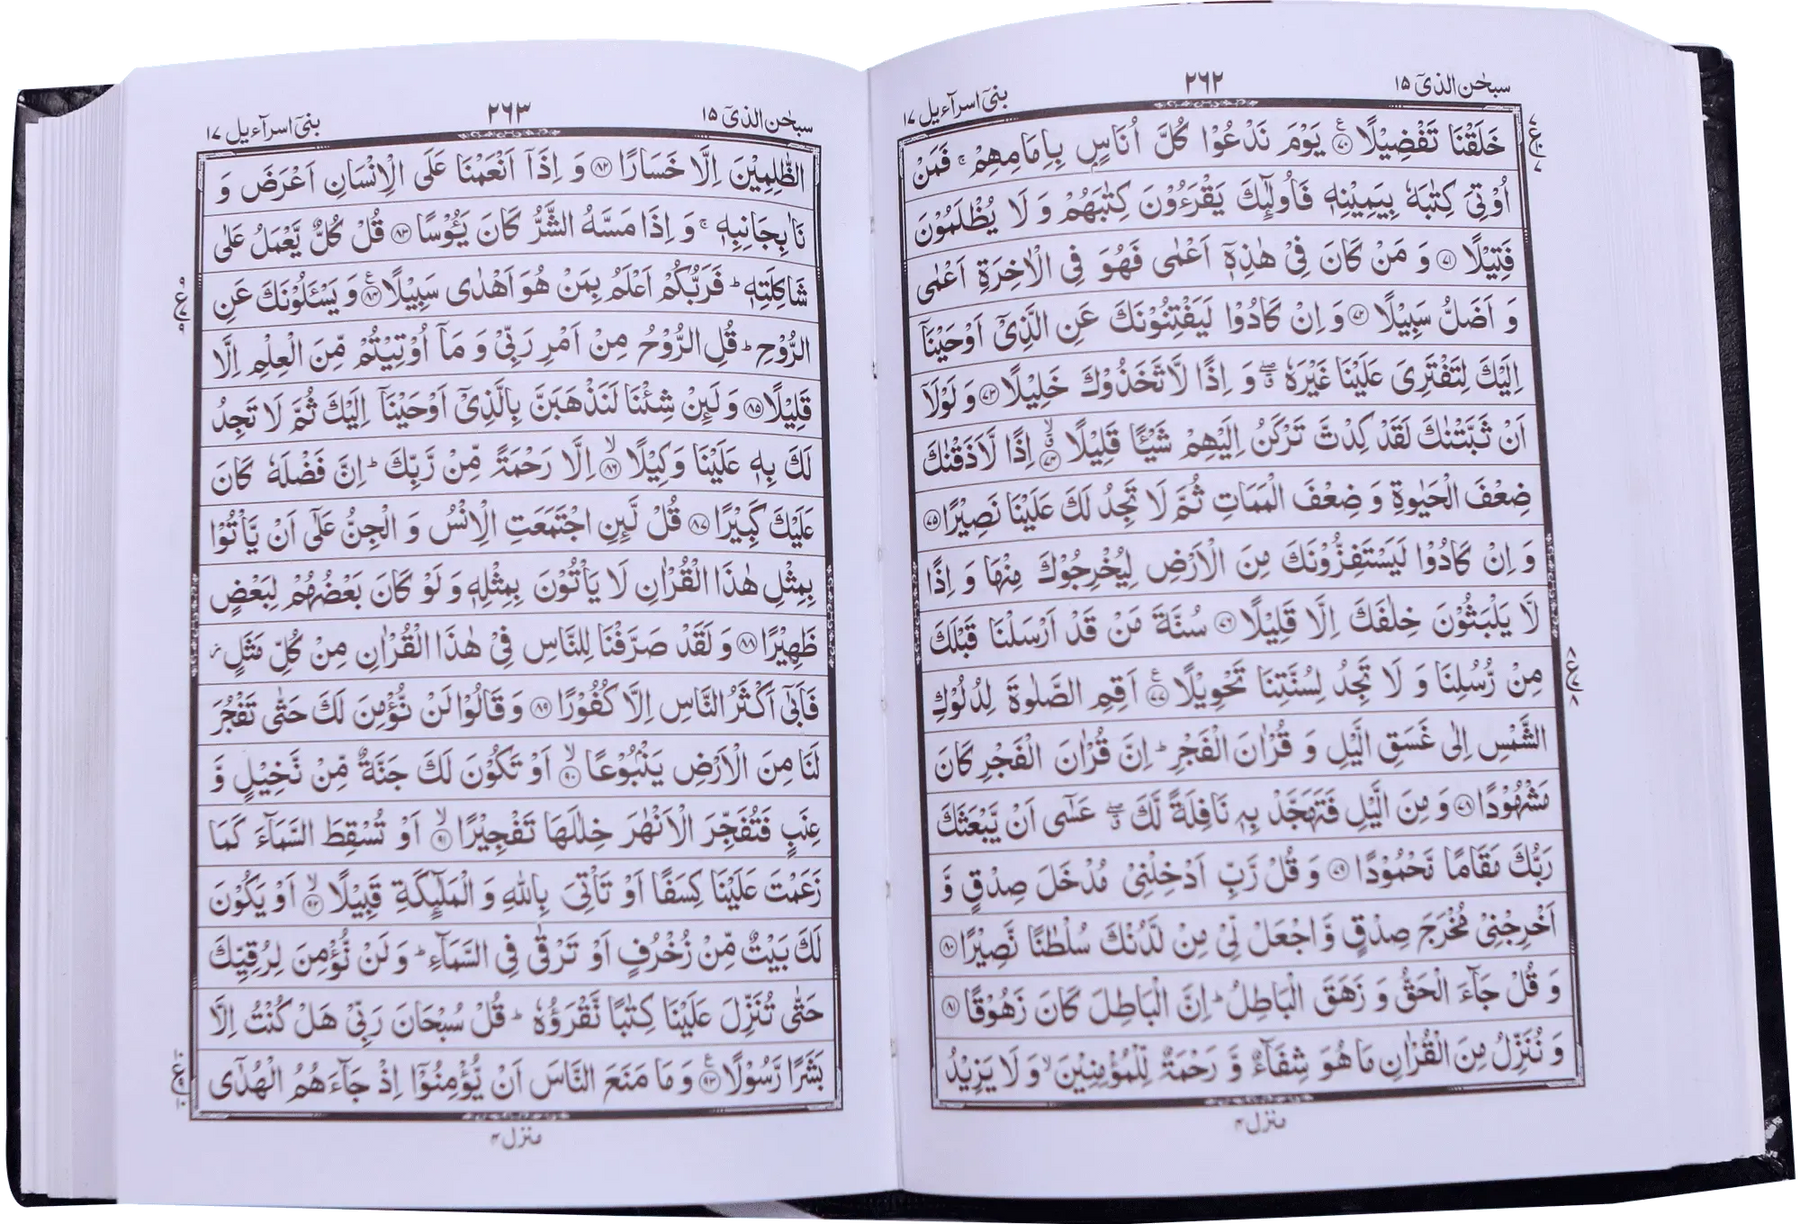 سبحٰن الذیٓ ۱۵
۲۶۲
بنیٓ اسرآءیل ۱۷
خَلَقْنَا تَفْضِیْلًا ﴿۷۰﴾ یَوْمَ نَدْعُوْا كُلَّ اُنَاسٍۭ بِاِمَامِهِمْ ۚ فَمَنْ
اُوْتِیَ كِتٰبَهٗ بِیَمِیْنِهٖ فَاُولٰٓىِٕكَ یَقْرَءُوْنَ كِتٰبَهُمْ وَ لَا یُظْلَمُوْنَ
فَتِیْلًا ﴿۷۱﴾ وَ مَنْ كَانَ فِیْ هٰذِهٖۤ اَعْمٰى فَهُوَ فِی الْاٰخِرَةِ اَعْمٰى
وَ اَضَلُّ سَبِیْلًا ﴿۷۲﴾ وَ اِنْ كَادُوْا لَیَفْتِنُوْنَكَ عَنِ الَّذِیْۤ اَوْحَیْنَاۤ
اِلَیْكَ لِتَفْتَرِیَ عَلَیْنَا غَیْرَهٗ ۖۗ وَ اِذًا لَّاتَّخَذُوْكَ خَلِیْلًا ﴿۷۳﴾ وَ لَوْلَاۤ
اَنْ ثَبَّتْنٰكَ لَقَدْ كِدْتَّ تَرْكَنُ اِلَیْهِمْ شَیْـًٔا قَلِیْلًا ﴿۷۴﴾ۗۙ اِذًا لَّاَذَقْنٰكَ
ضِعْفَ الْحَیٰوةِ وَ ضِعْفَ الْمَمَاتِ ثُمَّ لَا تَجِدُ لَكَ عَلَیْنَا نَصِیْرًا ﴿۷۵﴾
وَ اِنْ كَادُوْا لَیَسْتَفِزُّوْنَكَ مِنَ الْاَرْضِ لِیُخْرِجُوْكَ مِنْهَا وَ اِذًا
لَّا یَلْبَثُوْنَ خِلٰفَكَ اِلَّا قَلِیْلًا ﴿۷۶﴾ سُنَّةَ مَنْ قَدْ اَرْسَلْنَا قَبْلَكَ
مِنْ رُّسُلِنَا وَ لَا تَجِدُ لِسُنَّتِنَا تَحْوِیْلًا ﴿۷۷﴾ اَقِمِ الصَّلٰوةَ لِدُلُوْكِ
الشَّمْسِ اِلٰى غَسَقِ الَّیْلِ وَ قُرْاٰنَ الْفَجْرِ ؕ اِنَّ قُرْاٰنَ الْفَجْرِ كَانَ
مَشْهُوْدًا ﴿۷۸﴾ وَ مِنَ الَّیْلِ فَتَهَجَّدْ بِهٖ نَافِلَةً لَّكَ ۖۗ عَسٰۤى اَنْ یَّبْعَثَكَ
رَبُّكَ مَقَامًا مَّحْمُوْدًا ﴿۷۹﴾ وَ قُلْ رَّبِّ اَدْخِلْنِیْ مُدْخَلَ صِدْقٍ وَّ
اَخْرِجْنِیْ مُخْرَجَ صِدْقٍ وَّ اجْعَلْ لِّیْ مِنْ لَّدُنْكَ سُلْطٰنًا نَّصِیْرًا ﴿۸۰﴾
وَ قُلْ جَآءَ الْحَقُّ وَ زَهَقَ الْبَاطِلُ ؕ اِنَّ الْبَاطِلَ كَانَ زَهُوْقًا ﴿۸۱﴾
وَ نُنَزِّلُ مِنَ الْقُرْاٰنِ مَا هُوَ شِفَآءٌ وَّ رَحْمَةٌ لِّلْمُؤْمِنِیْنَ ۙ وَ لَا یَزِیْدُ
منزل ۴
سبحٰن الذیٓ ۱۵
۲۶۳
بنیٓ اسرآءیل ۱۷
الظّٰلِمِیْنَ اِلَّا خَسَارًا ﴿۸۲﴾ وَ اِذَاۤ اَنْعَمْنَا عَلَى الْاِنْسَانِ اَعْرَضَ وَ
نَاٰ بِجَانِبِهٖ ۚ وَ اِذَا مَسَّهُ الشَّرُّ كَانَ یَـُٔوْسًا ﴿۸۳﴾ قُلْ كُلٌّ یَّعْمَلُ عَلٰى
شَاكِلَتِهٖ ؕ فَرَبُّكُمْ اَعْلَمُ بِمَنْ هُوَ اَهْدٰى سَبِیْلًا ﴿۸۴﴾ وَ یَسْـَٔلُوْنَكَ عَنِ
الرُّوْحِ ؕ قُلِ الرُّوْحُ مِنْ اَمْرِ رَبِّیْ وَ مَاۤ اُوْتِیْتُمْ مِّنَ الْعِلْمِ اِلَّا
قَلِیْلًا ﴿۸۵﴾ وَ لَىِٕنْ شِئْنَا لَنَذْهَبَنَّ بِالَّذِیْۤ اَوْحَیْنَاۤ اِلَیْكَ ثُمَّ لَا تَجِدُ
لَكَ بِهٖ عَلَیْنَا وَكِیْلًا ﴿۸۶﴾ۙ اِلَّا رَحْمَةً مِّنْ رَّبِّكَ ؕ اِنَّ فَضْلَهٗ كَانَ
عَلَیْكَ كَبِیْرًا ﴿۸۷﴾ قُلْ لَّىِٕنِ اجْتَمَعَتِ الْاِنْسُ وَ الْجِنُّ عَلٰۤى اَنْ یَّاْتُوْا
بِمِثْلِ هٰذَا الْقُرْاٰنِ لَا یَاْتُوْنَ بِمِثْلِهٖ وَ لَوْ كَانَ بَعْضُهُمْ لِبَعْضٍ
ظَهِیْرًا ﴿۸۸﴾ وَ لَقَدْ صَرَّفْنَا لِلنَّاسِ فِیْ هٰذَا الْقُرْاٰنِ مِنْ كُلِّ مَثَلٍ ؗ
فَاَبٰۤى اَكْثَرُ النَّاسِ اِلَّا كُفُوْرًا ﴿۸۹﴾ وَ قَالُوْا لَنْ نُّؤْمِنَ لَكَ حَتّٰى تَفْجُرَ
لَنَا مِنَ الْاَرْضِ یَنْۢبُوْعًا ﴿۹۰﴾ۙ اَوْ تَكُوْنَ لَكَ جَنَّةٌ مِّنْ نَّخِیْلٍ وَّ
عِنَبٍ فَتُفَجِّرَ الْاَنْهٰرَ خِلٰلَهَا تَفْجِیْرًا ﴿۹۱﴾ۙ اَوْ تُسْقِطَ السَّمَآءَ كَمَا
زَعَمْتَ عَلَیْنَا كِسَفًا اَوْ تَاْتِیَ بِاللّٰهِ وَ الْمَلٰٓىِٕكَةِ قَبِیْلًا ﴿۹۲﴾ۙ اَوْ یَكُوْنَ
لَكَ بَیْتٌ مِّنْ زُخْرُفٍ اَوْ تَرْقٰى فِی السَّمَآءِ ؕ وَ لَنْ نُّؤْمِنَ لِرُقِیِّكَ
حَتّٰى تُنَزِّلَ عَلَیْنَا كِتٰبًا نَّقْرَؤُهٗ ؕ قُلْ سُبْحَانَ رَبِّیْ هَلْ كُنْتُ اِلَّا
بَشَرًا رَّسُوْلًا ﴿۹۳﴾ وَ مَا مَنَعَ النَّاسَ اَنْ یُّؤْمِنُوْۤا اِذْ جَآءَهُمُ الْهُدٰۤى
منزل ۴